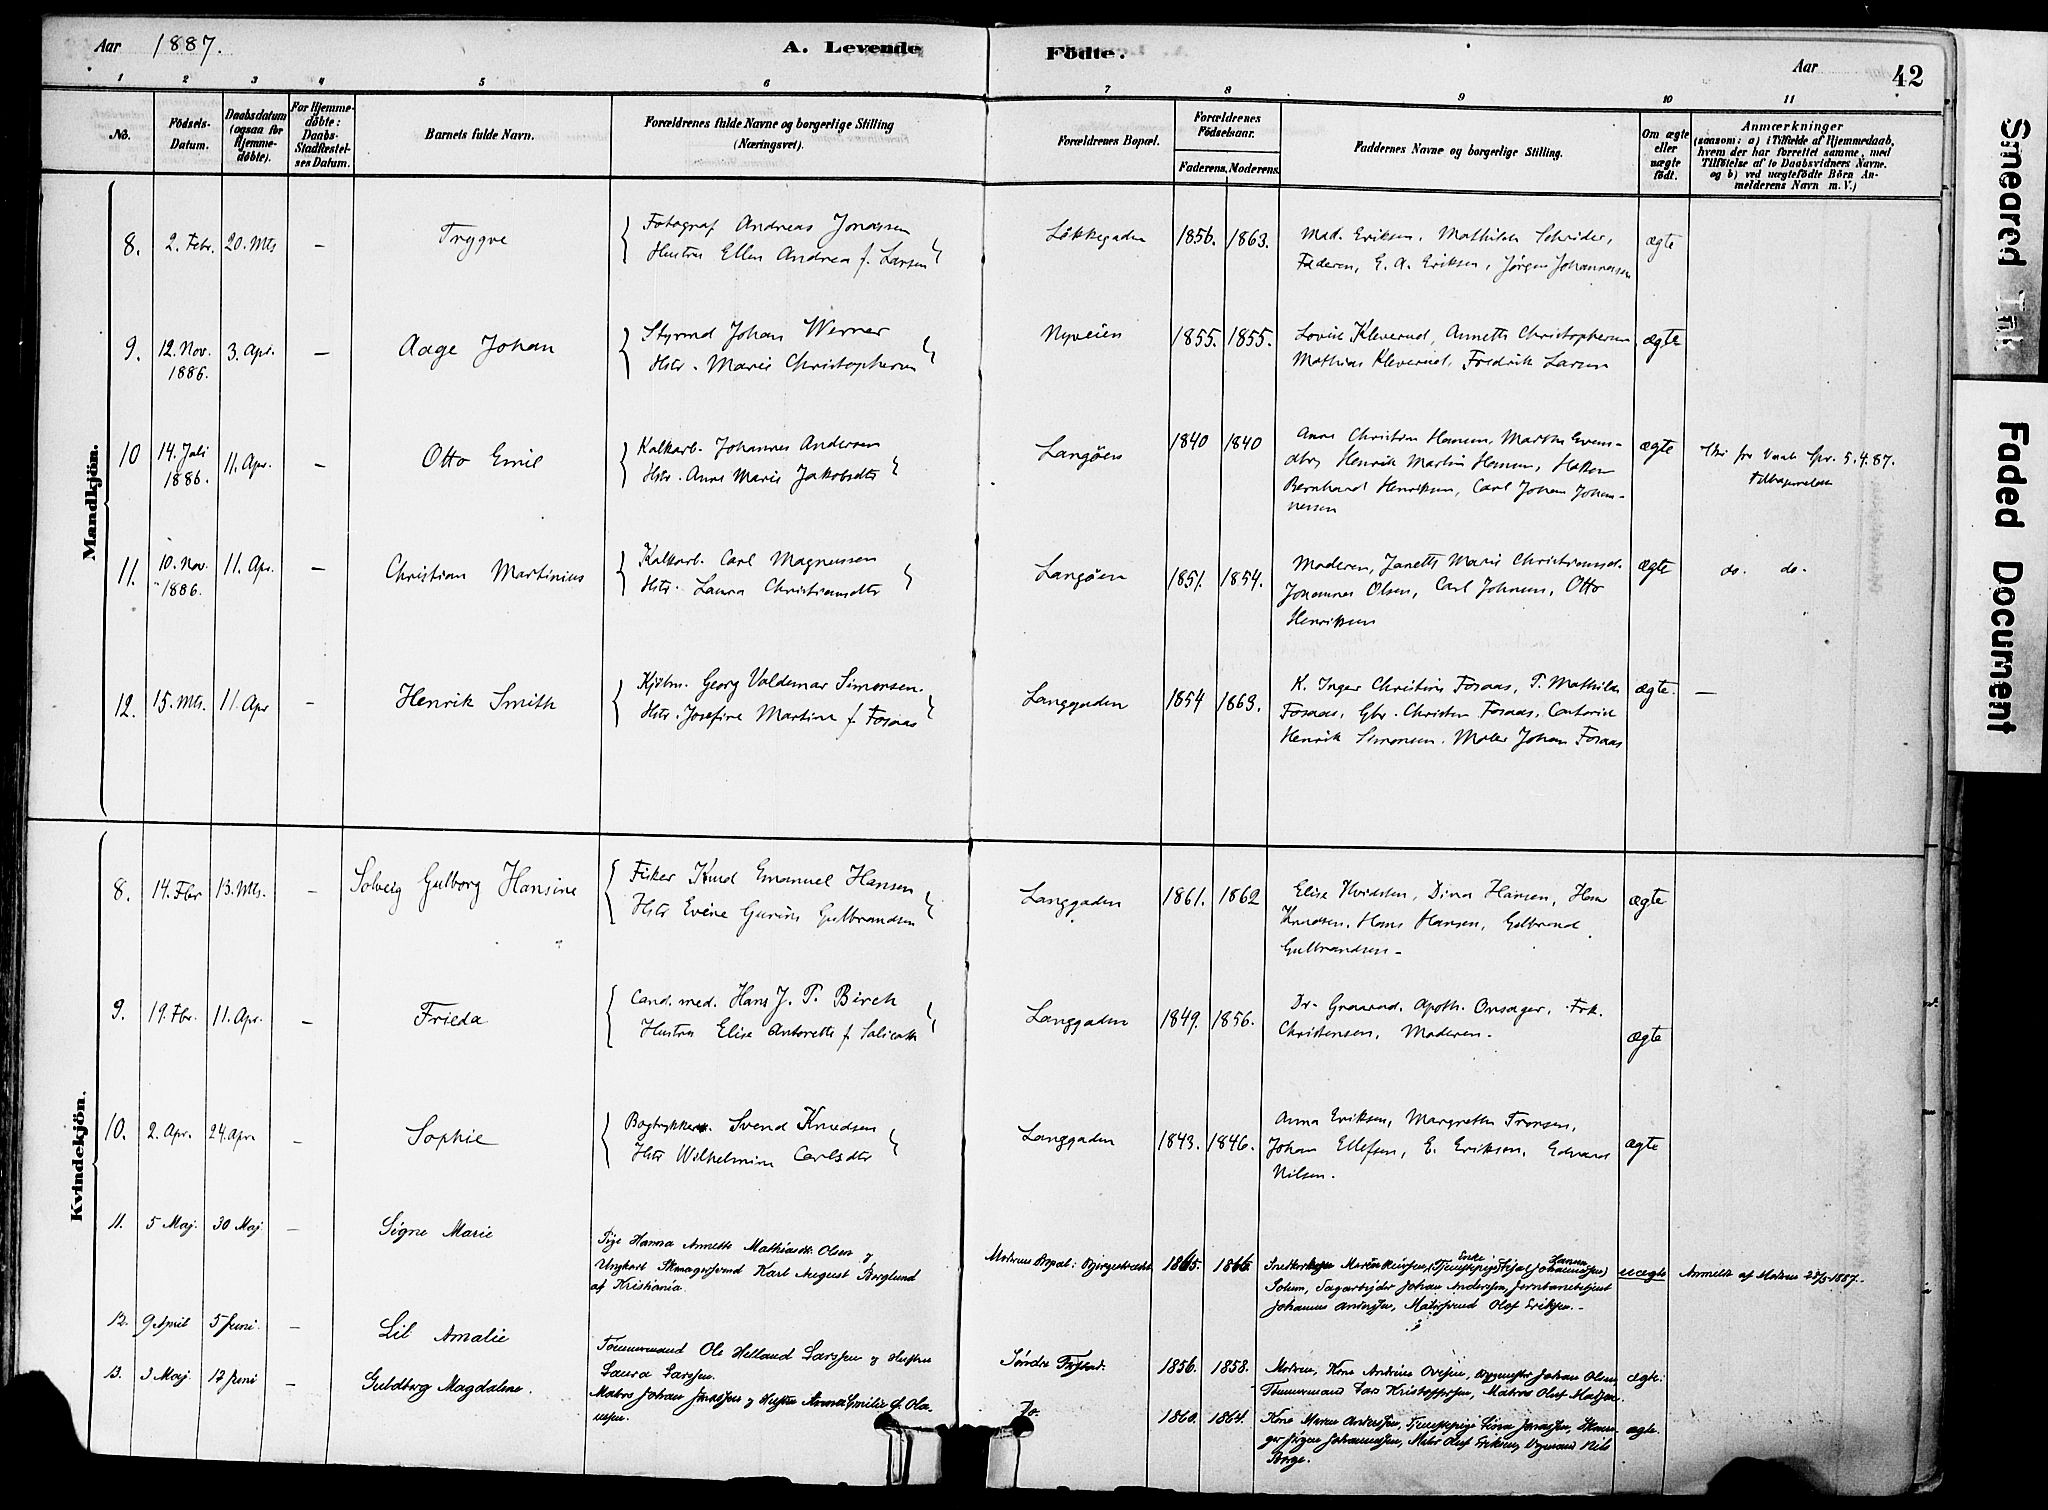 Aar 1887.
A. Levende Födte.
Aar
42
1 2 3 4 5 6 7 8 9 10 11
No.
Födsels-Datum.
Daabsdatum (ogsaa for Hjemme-döbte).
For Hjemme-döbte: Daabs-Stadfæstel-ses Datum.
Barnets fulde Navn.
Forældrenes fulde Navne og borgerlige Stilling (Næringsvei).
Forældrenes Bopæl.
Forældrenes Födselsaar.
Faderens. Moderens.
Faddernes Navne og borgerlige Stilling.
Om ægte eller uægte födt.
Anmærkninger
(saasom: a) i Tilfælde af Hjemmedaab,
hvem der har forrettet samme, med
Tilföielse af to Daabsvidners Navne.
og b) ved uægtefödte Börn An-
melderens Navn m. V.)
Mandkjön.
8. 2. Febr. 20. Mts — Trygve
Fotograf Andreas Jonassen
Hustru Ellen Andrea f. Larsen
Løkkegaden 1856. 1863.
Mad. Eriksen, Mathilde Schrider,
Faderen, E. A. Eriksen, Jørgen Johannessen
ægte
9. 12. Nov. 1886. 3. Apr. — Aage Johan
Styrmd Johan Werner
Hstr. Marie Christophersen
Nyveien 1855. 1855.
Lovise Kleverud, Annette Christophersen
Mathias Kleverud, Fredrik Larsen
ægte
10 14. Juli 1886. 11. Apr. — Otto Emil
Kalkarb. Johannes Andersen
Hstr. Anne Marie Jakobsdtr
Langøen 1840 1840
Anne Christine Hansen, Marthe
Henrik Martin Hansen,
Bernhard Henriksen, Carl Johan Johan-
nessen
ægte
5.4.87.
11. 10. Nov. 1886. 11. Apr. — Christian Martinius
Kalkarb. Carl Magnussen
Hstr. Laura Christiansdtr
Langøen 1851. 1854.
Moderen, Janette Marie Christiansd.
Johannes Olsen, Carl Johnsen, Otto
Henriksen
ægte do. do.
12. 15. Mts. 11. Apr — Henrik Smith
Kjøbm. Georg Valdemar Simonsen.
Hstr. Josefine Martine f. Fosaas
Langgaden 1854 1863.
K. Inger Christine Fosaas, P. Mathilde
Fosaas, Gbr. Christen Fosaas, Contorist
Henrik Simonsen. Maler Johan Fosaas
ægte. —
Kvindekjön.
8. 14. Fbr 13. Mts. — Solveig Gulborg Hansine
Fisker Knud Emanuel Hansen
Hstr Evine Gurine Gulbrandsen
Langgaden 1861. 1862
Elise Hvidsten, Dina Hansen, Hans
Knudsen, Hans Hansen, Gulbrand
Gulbrandsen -
ægte
9. 19. Fbr. 11. Apr. — Frieda
Cand. med. Hans J. T. Birch
Hustru Elise Antonette f.
Langgaden 1849. 1856.
Dr. Graarud, Apoth. Onsager, Frk.
Christensen, Moderen.
ægte
10. 2. Apr. 24. Apr. — Sophie
Bogtrykker. Svend Knudsen
Hstr Wilhelmine Carlsdtr
Langgaden 1843. 1846.
Anna Eriksen, Margrethe Tronsen,
Johan Ellefsen, E. Eriksen, Edvard
Nilsen.
ægte
11. 5 Maj. 30 Maj. — Signe Marie
Pige Hanna Annette Mathiasdtr. Olsen og
Ungkarl Skomagersvend Karl August Berglund
af Kristiania.
Moderens Bopæl: 1865. 1866
Johan Anderssen, Jernbanebetjent
Johannes Malersvend Olof Eriksen.
uægte
Anmeldt af Moderen 28/5 1887.
12. 9 April 5 Juni. — Lil Amalie
Tømmermand Ole Helland Larssen og Hustru
Laura Larssen.
Søndre 1856. 1858.
Moderen, Kone Andrine Johan Olsen,
Tømmermand Lars Kristoffersen, Matros Oluf Madsen.
ægte.
13. 3 Maj. 12 Juni — Guldborg Magdalene.
Matros Johan Jonassen og Hustru Anna Emilie f. Ola-
ussen.
Do. 1860. 1864.
Kone Maren Anderssen, Tjenestepige Lina Jonassen,
Jørgen Johannessen, Matr. Oluf Eriksen, Nils
Borge.
ægte.
Smeared Ink
Faded Document